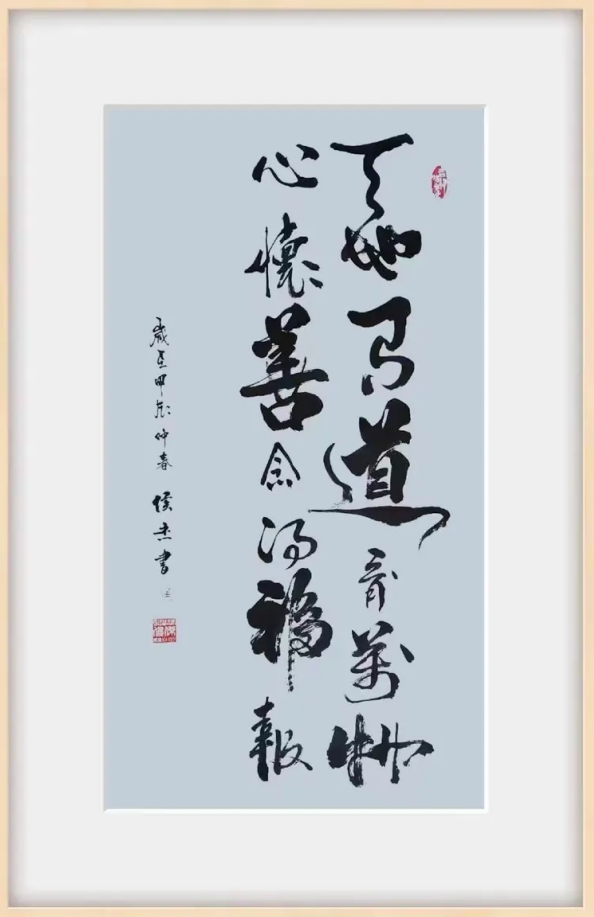 天地有道育萬物
心懷善念得福報
歲在甲辰仲春 侯杰書